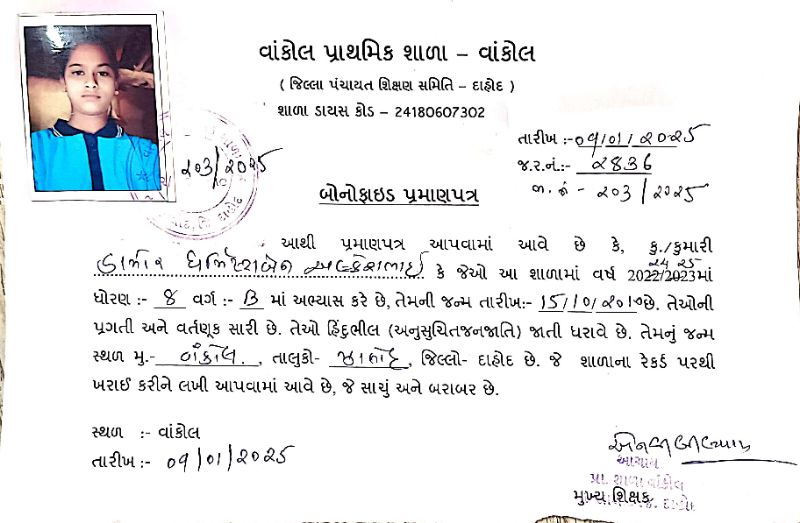 વાંકોલ પ્રાથમિક શાળા – વાંકોલ
( જિલ્લા પંચાયત શિક્ષણ સમિતિ – દાહોદ )
શાળા ડાયસ કોડ – 24180607302
તારીખ :- ૦૧/૦૧/૨૦૨૫
જ.ર.નં.:- ૨૮૩૬
જા.નં - ૨૦૩/૨૦૨૫
૨૦૩/૨૦૨૫
બોનોફાઇડ પ્રમાણપત્ર
આથી પ્રમાણપત્ર આપવામાં આવે છે કે, કુ./કુમારી
ડામોર કે જેઓ આ શાળામાં વર્ષ 2022/2023માં
24 25
ધોરણ :- ૪ વર્ગ :- B માં અભ્યાસ કરે છે, તેમની જન્મ તારીખ:- ૧૫/૧૦/૨૦૧૦ છે. તેઓની
પ્રગતી અને વર્તણૂક સારી છે. તેઓ હિંદુભીલ (અનુસુચિતજનજાતિ) જાતી ધરાવે છે. તેમનું જન્મ
સ્થળ મુ.- વાંકોલ. , તાલુકો- ઝાલોદ, જિલ્લો- દાહોદ છે. જે શાળાના રેકર્ડ પરથી
ખરાઈ કરીને લખી આપવામાં આવે છે, જે સાચું અને બરાબર છે.
સ્થળ :- વાંકોલ
તારીખ :- ૦૧/૦૧/૨૦૨૫
આચાર્ય
પ્રા. શાળા વાંકોલ
મુખ્ય શિક્ષક
જિ. દાહોદ